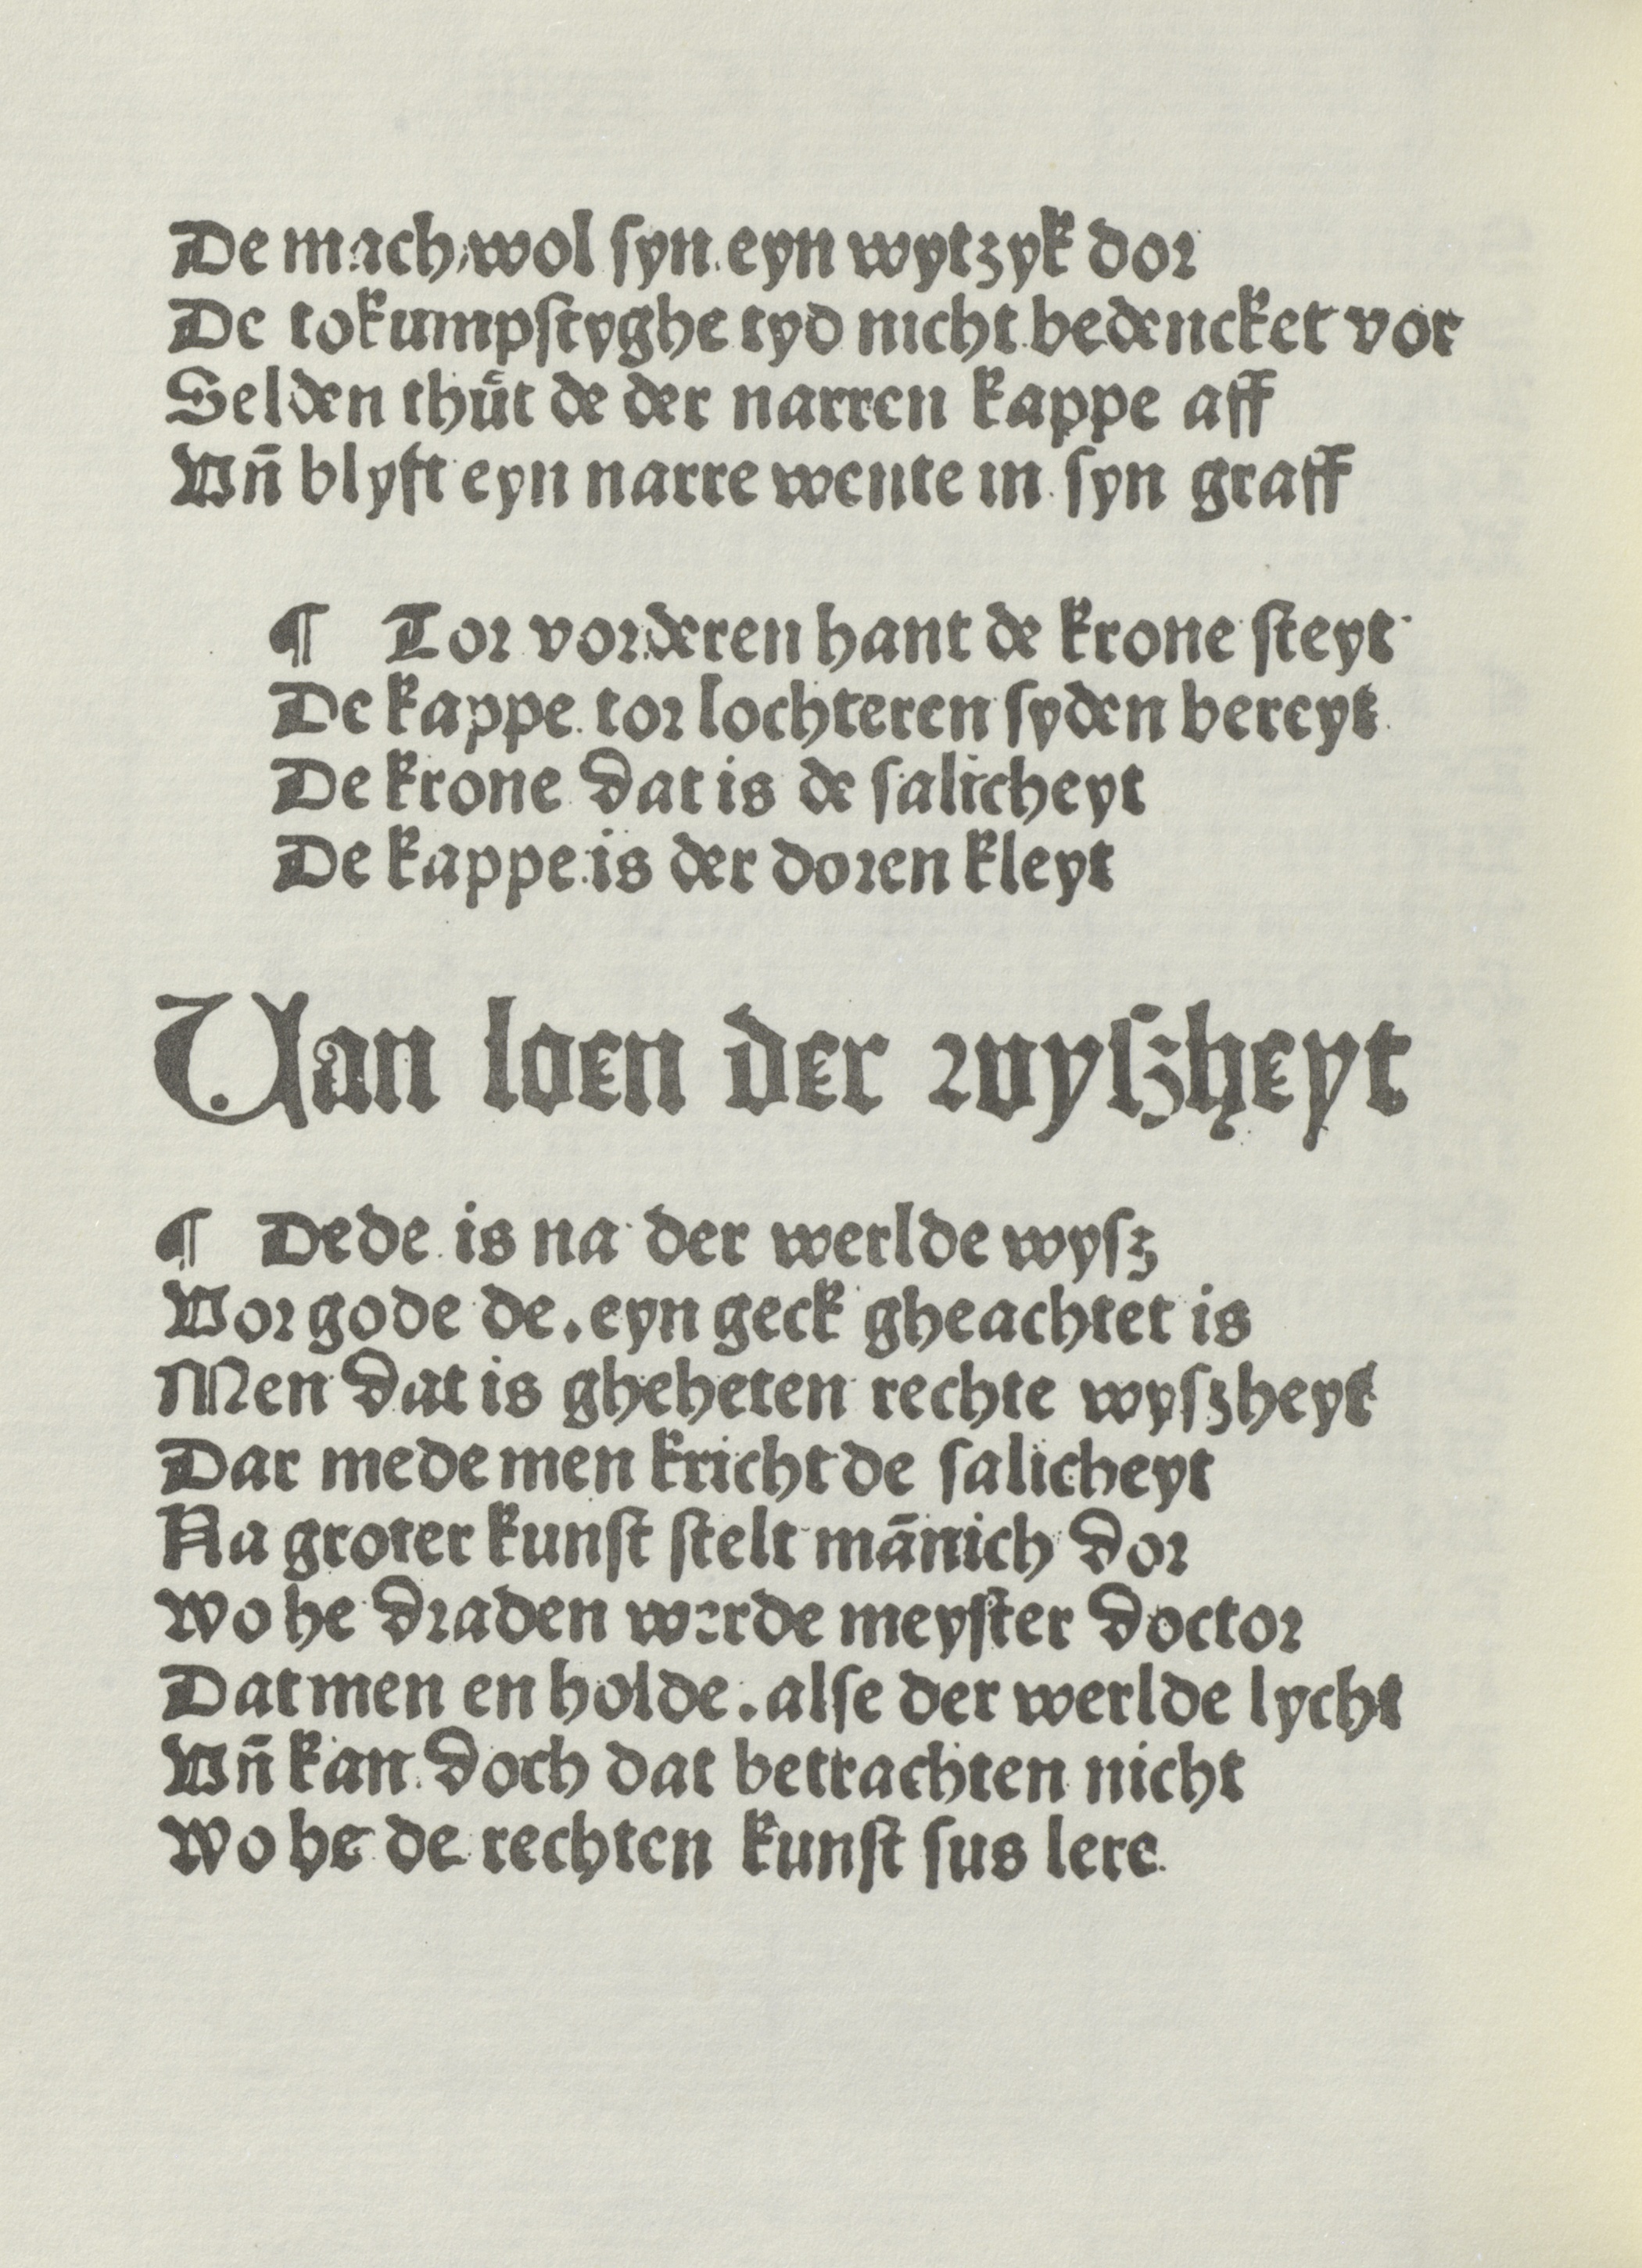 De mach wol syn eyn wytzyk dor
De tokumpstyghe tyd nicht bedencket vor
Selden thuͤt de der narren kappe aff
Vn̄ blyft eyn narre wente in syn graff
¶ Tor vorderen hant de krone steyt
De kappe tor lochteren syden bereyt
De krone dat is de salicheyt
De kappe is der doren kleyt
Uan loen der wyſzheyt
¶ Dede is na der werlde wyſz
Vor gode de. eyn geck gheachtet is
Men dat is gheheten rechte wyſzheyt
Dar mede men kricht de salicheyt
Na groter kunst stelt mānich dor
Wo he draden werde meyster doctor
Dat men en holde. alse der werlde lycht
Vn̄ kan doch dat betrachten nicht
Wo he de rechten kunst sus lere